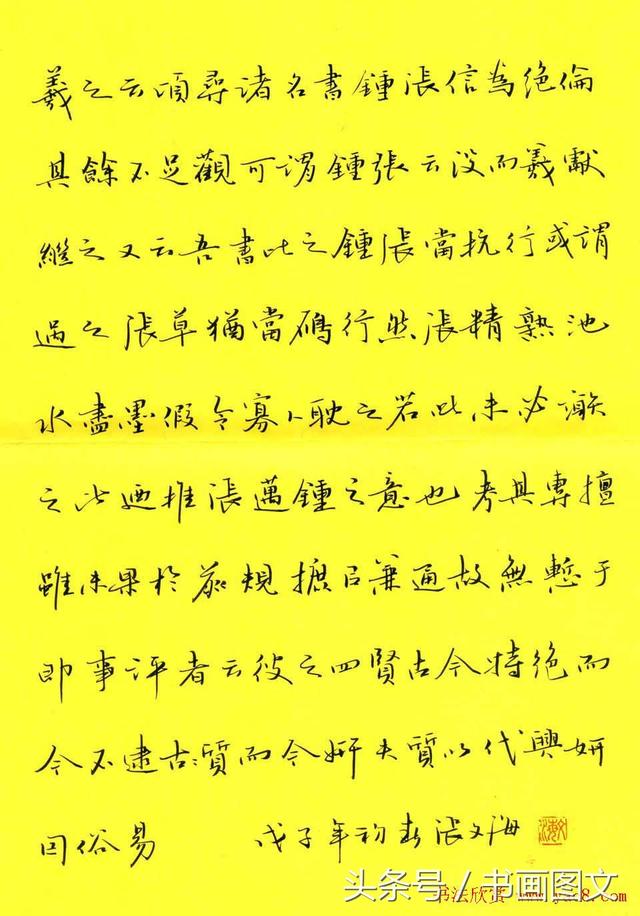 羲之云頃尋諸名書鍾張信為絕倫
其餘不足觀可謂鍾張云沒而羲獻
繼之又云吾書比之鍾張當抗行或謂
過之張草猶當鴈行然張精熟池
水盡墨假令寡人耽之若此未必謝
之此迺推張邁鍾之意也考其專擅
雖未果於前規摭以兼通故無慙于
即事評者云彼之四賢古今特絕而
今不逮古々質而今妍夫質以代興妍
因俗易 戊子年初春張文海
头条号／书画图文
书法欣赏